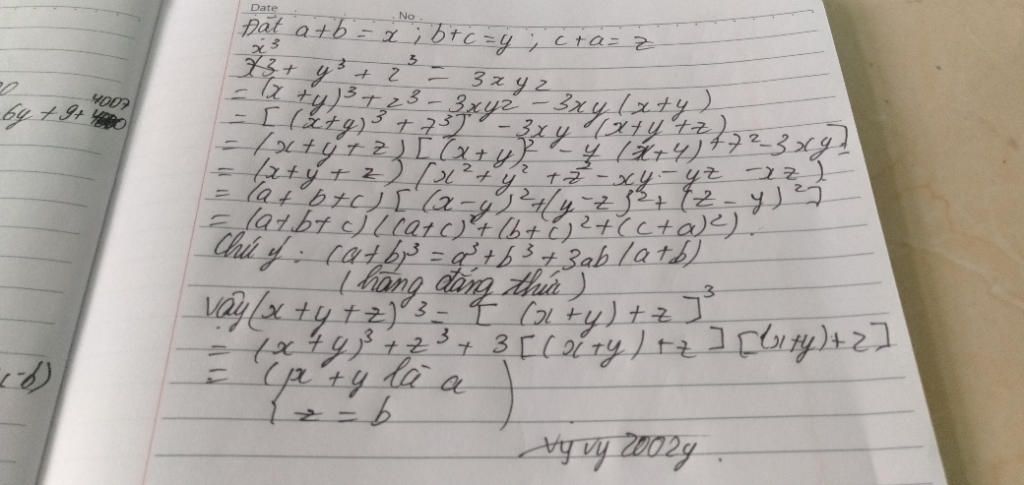 Date No
Đặt a+b = x ; b+c = y ; c+a = z
x³
x3 + y³ + z³ - 3xyz
= (x+y)³ + z³ - 3xyz - 3xy(x+y)
= [(x+y)³ + z³] - 3xy (x+y+z)
= (x+y+z) [(x+y)² - y (x+y) + z² - 3xy]
= (x+y+z) (x² + y² + z² - xy - yz - xz)
= (a+b+c) [(x-y)² + (y-z)² + (z-y)²]
= (a+b+c) ((a+c)² + (b+c)² + (c+a)²).
Chú ý : (a+b)³ = a³ + b³ + 3ab (a+b)
(hằng đẳng thức)
Vậy (x+y+z)³ = [ (x+y) + z ]³
= (x+y)³ + z³ + 3 [(x+y) + z ] [(x+y) + z]
= ( x + y là a )
{ z = b
vy vy 2002y .
6y + 9 + 4007
c-b)